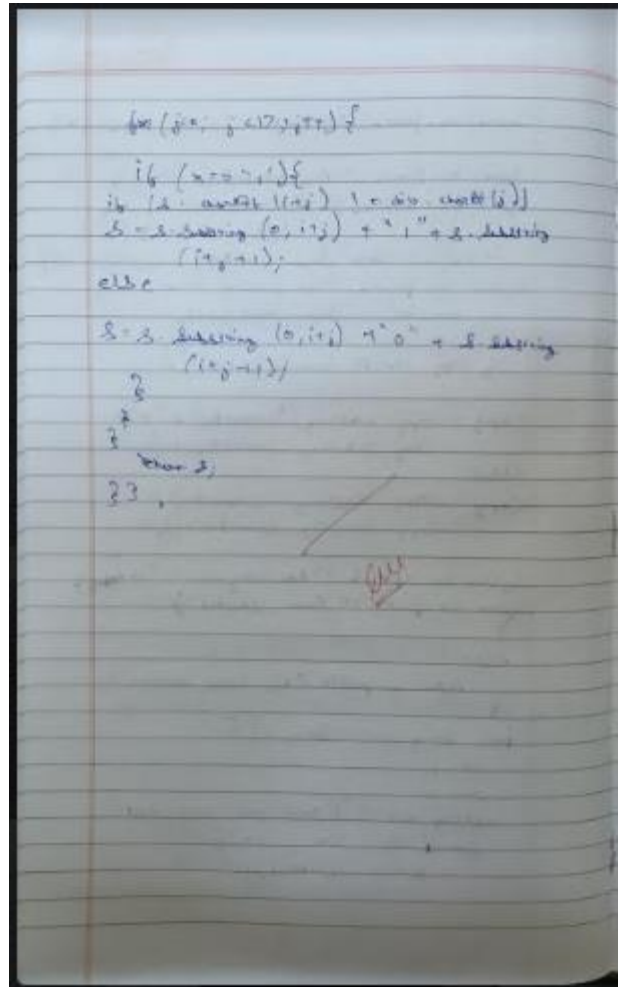 for (j=0; j<17; j++) {
if (x==0 '1') {
if (s. charAt (i+j) != div. charAt (j))
s = s. substring (0, i+j) + "1" + s. substring
(i+j+1);
else
s = s. substring (0, i+j) + "0" + s. substring
(i+j+1);
}
}
}
return s;
}}